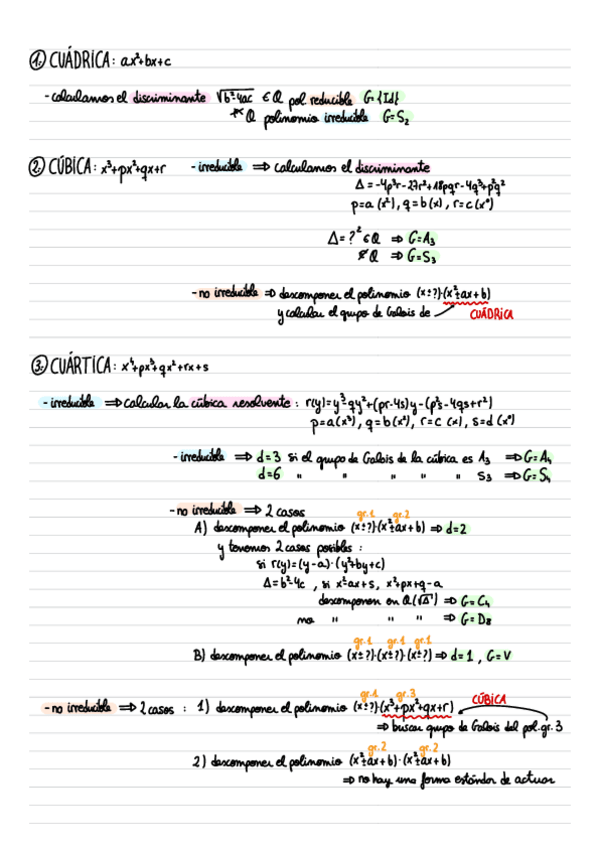 1. CUÁDRICA: ax²+bx+c
- calculamos el discriminante √b²-4ac ∈ Q pol reducible G={Id}
∉ Q polinomio irreducible G=S₂
2. CÚBICA: x³+px²+qx+r - irreducible ⇒ calculamos el discriminante
Δ=-4p³r-27r²+18pqr-4q³+p²q²
p=a(x²), q=b(x), r=c(x⁰)
Δ=?² ∈Q ⇒ G=A₃
∉Q ⇒ G=S₃
- no irreducible ⇒ descomponer el polinomio (x±?)·(x²±ax+b)
y calcular el grupo de Galois de CUÁDRICA
3. CUÁRTICA: x⁴+px³+qx²+rx+s
- irreducible ⇒ calcular la cúbica resolvente: r(y)=y³-qy²+(pr-4s)y-(p²s-4qs+r²)
p=a(x³), q=b(x²), r=c(x), s=d(x⁰)
- irreducible ⇒ d=3 si el grupo de Galois de la cúbica es A₃ ⇒ G=A₄
d=6 " " " " " S₃ ⇒ G=S₄
- no irreducible ⇒ 2 casos gr.1 gr.2
A) descomponer el polinomio (x±?)·(x²±ax+b) ⇒ d=2
y tenemos 2 casos posibles:
si r(y)=(y-a)·(y²+by+c)
Δ=b²-4c, si x²-ax+s, x²+px+q-a
descomponen en Q(√Δ) ⇒ G=C₄
no " " " ⇒ G=D₈
gr.1 gr.1 gr.1
B) descomponer el polinomio (x±?)·(x±?)·(x±?) ⇒ d=1, G=V
gr.1 gr.3 CÚBICA
- no irreducible ⇒ 2 casos: 1) descomponer el polinomio (x±?)·(x³+px²+qx+r)
⇒ buscar grupo de Galois del pol.gr.3
gr.2 gr.2
2) descomponer el polinomio (x²±ax+b)·(x²±ax+b)
⇒ no hay una forma estándar de actuar